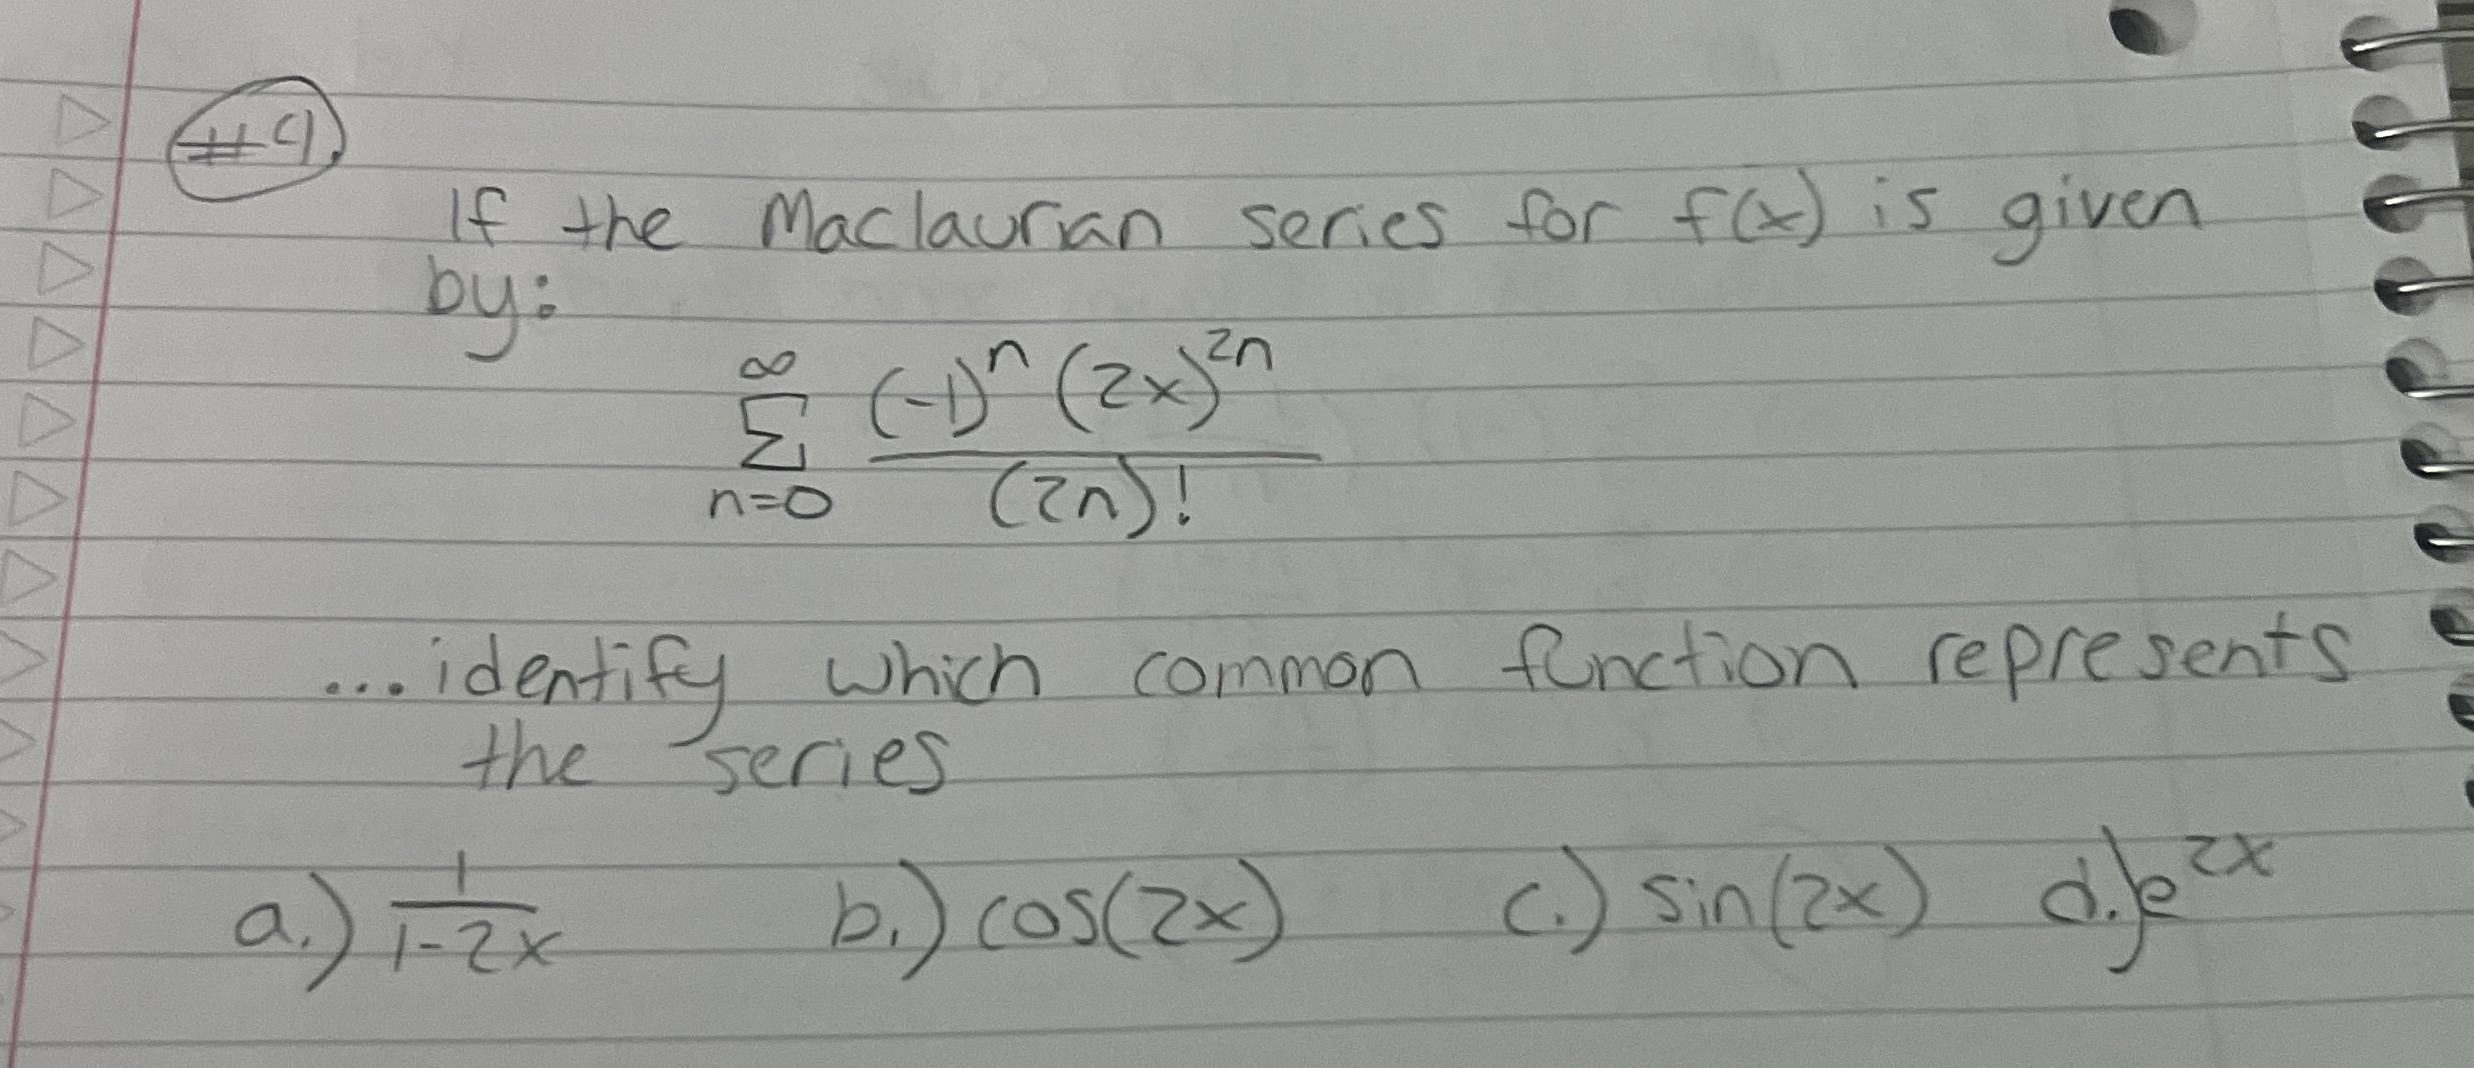 #9.
If the Maclaurian series for f(x) is given
by:
∞
Σ (-1)^n (2x)^2n / (2n)!
n=0
...identify which common function represents
the series
a.) 1/(1-2x) b.) cos(2x) c.) sin(2x) d.) e^2x